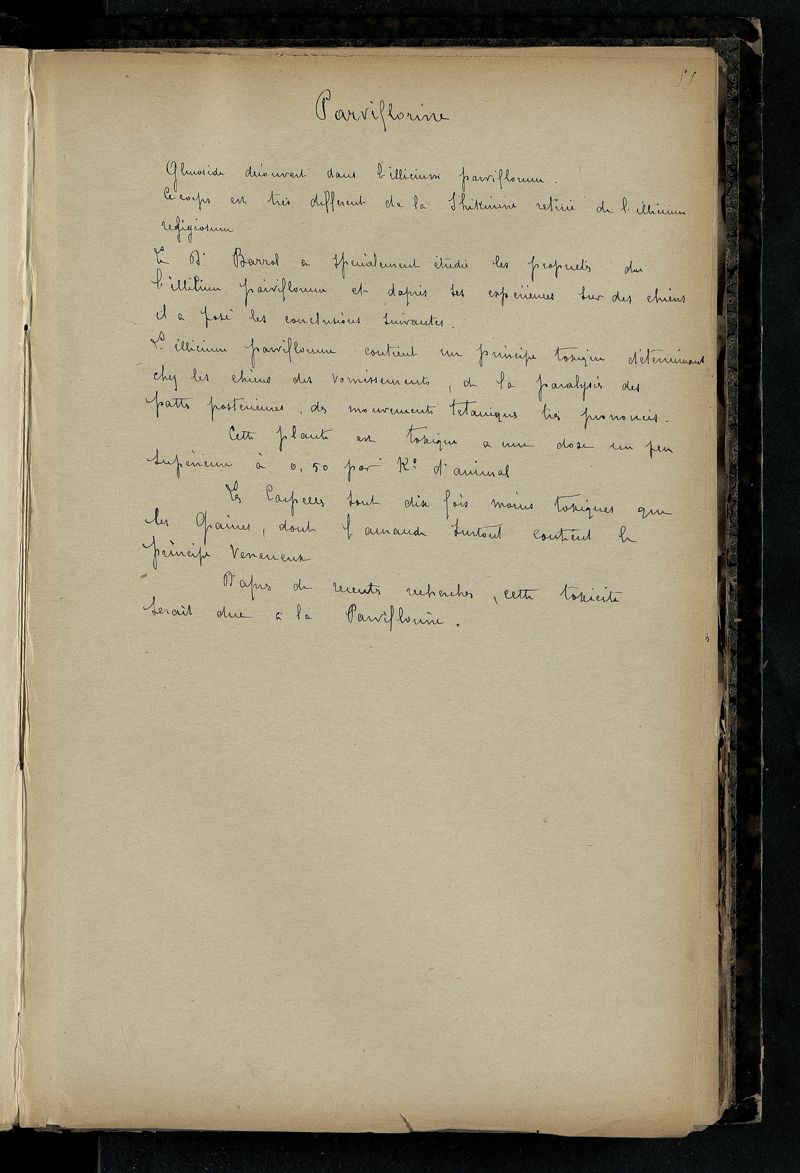 55
Parviflorine
Glucoside découvert dans l'illicium parviflorum.
Ce corps est très différent de la Shikimine retirée de l'illicium
religiosum
Le Dr Barral a specialement étudié les propriétés du
l'illicium parviflorum et d'après ses expériences sur des chiens
il a posé les conclusions suivantes.
L'illicium parviflorum contient un principe toxique déterminant
chez les chiens des vomissements, de la paralysie des
pattes posterieures, des mouvements tetaniques très prononcés.
Cette plante est toxique a une dose un peu
supérieure à 0,50 par K° d'animal
Les Carpelles sont dix fois moins toxiques que
les Graines, dont l'amande surtout contient le
principe Veneneux
D'apres de recents recherches, cette toxicité
serait due à la Parviflorine.